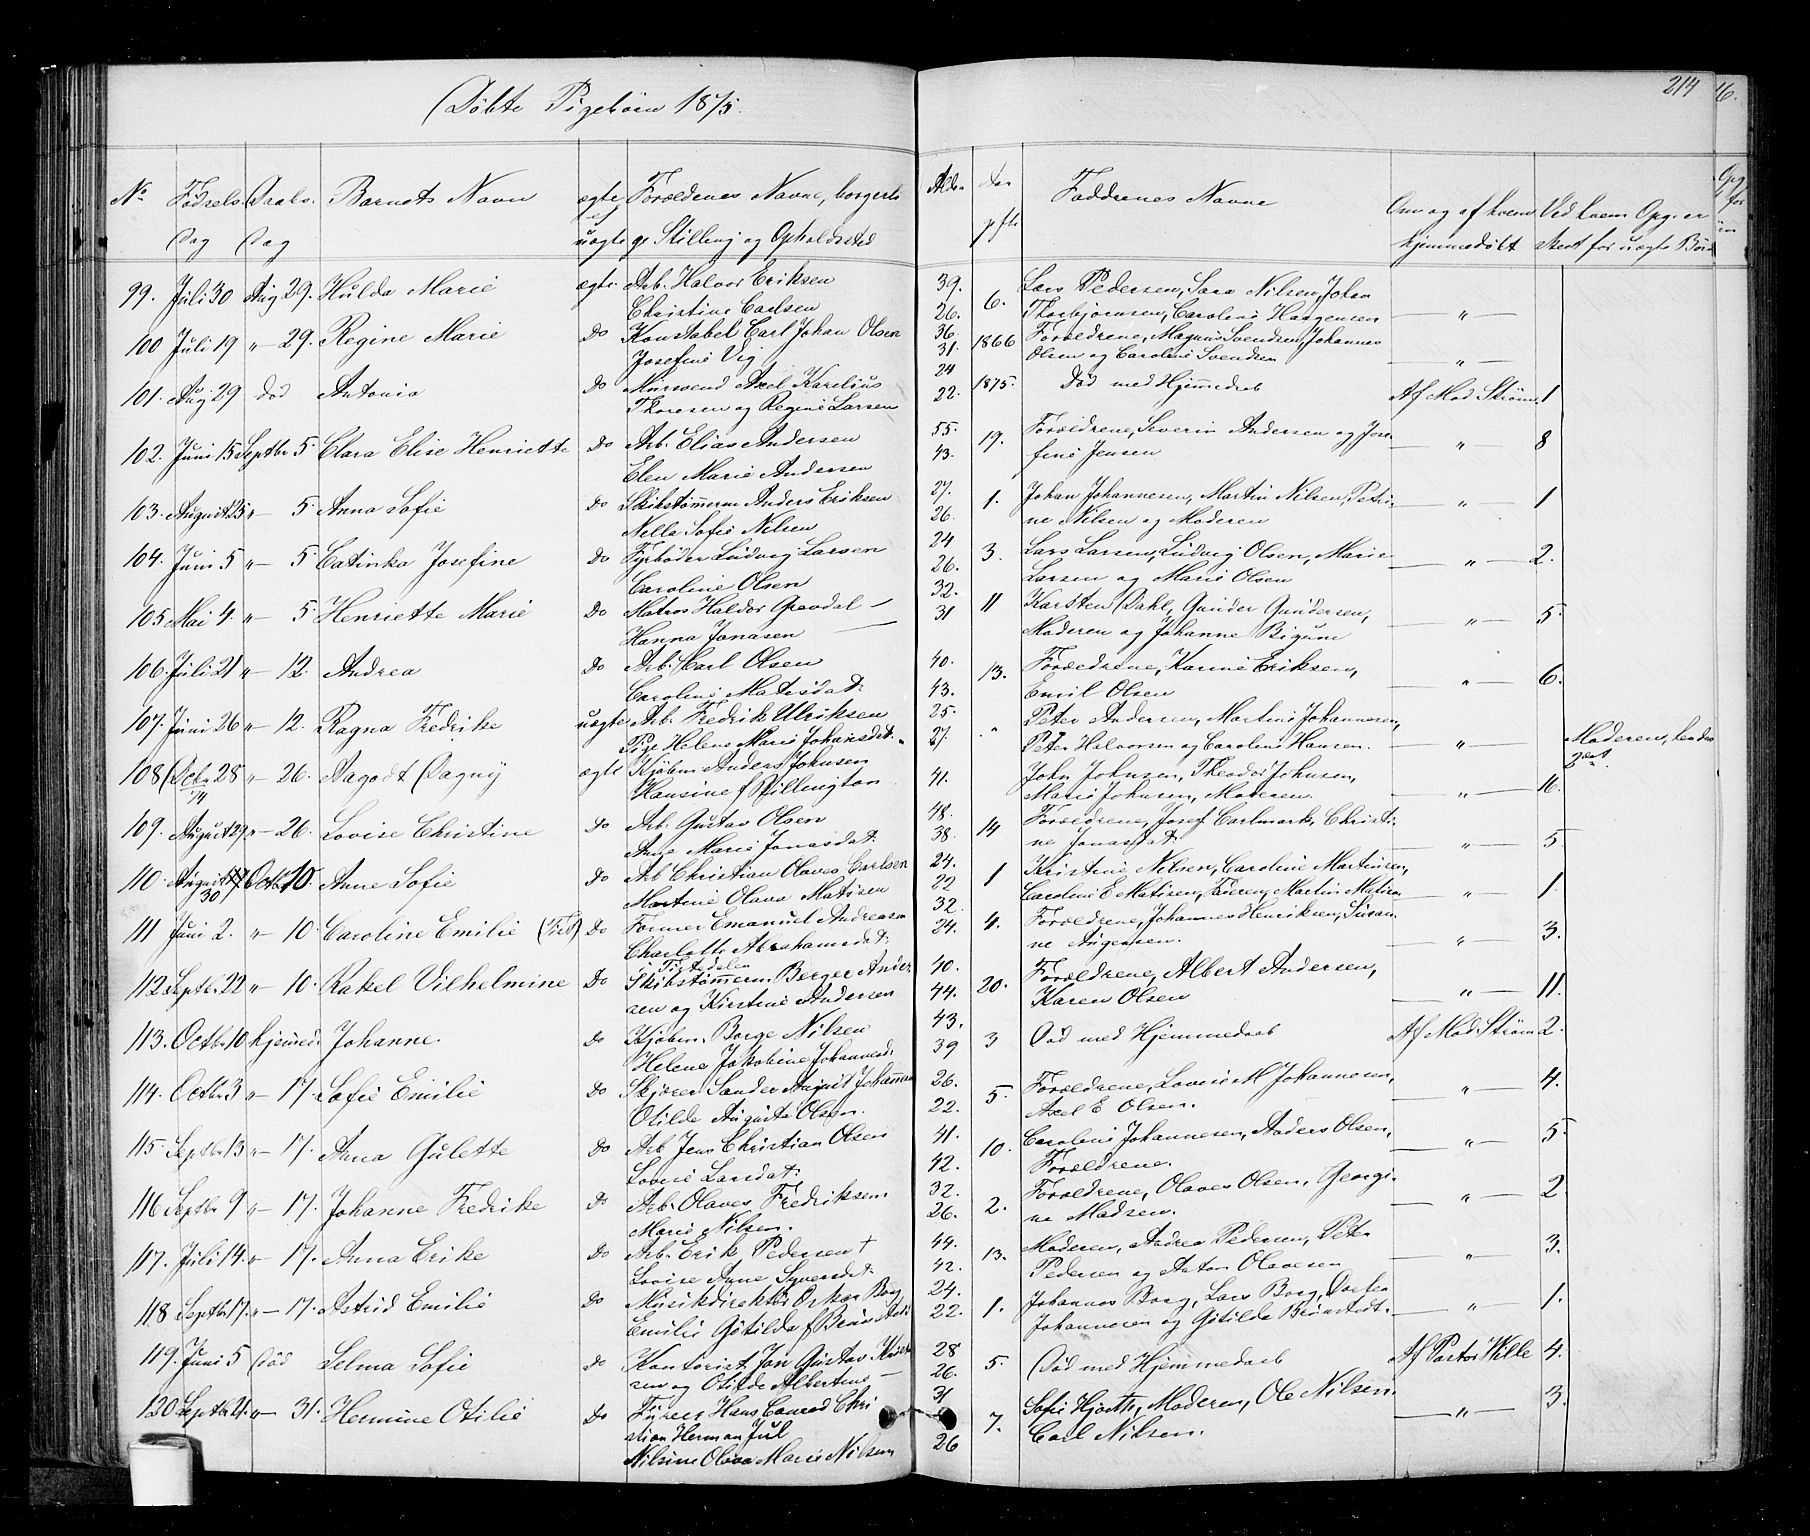 Døbte Pigebørn 1875.
214
16.
No Fødsels Daabs. Barnets Navn ægte Forældrenes Navne, borgerli Alder Aar Faddrenes Navne Om og af hvem Ved hvem Opg. er
Dag Dag uægte ge Stilling og Opholdssted gifte hjemmedøbt skeet for uægte Børn
99. Juli 30 Aug 29. Hulda Marie ægte Arb. Halvor Eriksen 39. 6. Lars Pedersen, Sara Nilsen, Johan
Christine Carlsen 26. Thorbjørnsen, Caroline Haagensen — " —
100 Juli 19 " 29. Regine Marie Do Konstabel Carl Johan Olsen 36 1866 Forældrene, Magnus Svendsen, Johannes
Josefine Vig 31. Olsen og Caroline Svendsen — " —
101. Aug 29 død Antonia Do Murswend Axel Karelius 24 1875. Død med Hjemmedaab Af Mad Strøm. 1
Thoresen og Regine Larsen 22.
102. Juni 15 Septbr 5. Clara Elise Henriette Do Arb. Elias Andersen 55. 19. Forældrene, Severin Andersen og Jose
Elen Marie Andersen 43. fine Jensen — " — 8
103. August 25 " 5 Anna Sofie Do Skibstømmerm Anders Eriksen 27. 1. Johan Johannesen, Martin Nilsen, Petri-
Nella Sofie Nelsen 26. ne Nilsen og Moderen — " — 1
104. Juni 5 " 5. Catinka Josefine Do Fyrbøder Ludvig Larsen 24 3. Lars Larsen, Ludvig Olsen, Marie
Caroline Olsen 26. Larsen og Marie Olsen — " — 2.
105 Mai 4. " 5 Henriette Marie Do Matros Haldor Grøndal — 32. 11 Karsten Dahl, Gunder Gundersen,
Hanna Jonasen — 31 Moderen og Johanne Bigum — " — 5.
106. Juli 21 " 12. Andrea Do Arb. Carl Olsen 40. 13. Forældrene, Karine Eriksen,
Caroline Matisdat: 43. Emil Olsen " — 6.
107. Juni 26 " 12. Ragna Fredrike uægte Arb. Fredrik Ulriksen 25. " Peter Andersen, Martine Johannesen,
Pige Helene Marie Johansdat. 27. Peter Halvorsen og Caroline Hansen. — " — Moderen, hendes
2det.
108 Octbr 28 " 26. Aagodt Dagny ægte Kjøbm Anders Johnsen 41. John Johnsen, Theodor Johnsen,
74 Hansine f Pillington Marie Johnsen, Moderen. — " — 16.
109. August 29. " 26. Lovise Christine Do Arb. Gustav Olsen 48. 14 Forældrene, Josef Carlmark, Christi-
Ane Marie Jonasdat: 38. ne Jonasdat. — " — 5
110 August 17 Octbr 10. Anne Sofie Do Arb Christian Olaves Carlsen 24. 1 Kristine Nilsen, Caroline Martinsen,
30 Martine Olava Matisen 22 Caroline E Matisen, Faderen, Martin Matisen — " — 1.
111 Juni 2. " 10. Caroline Emilie (Tist) Do Former Emanuel Andreasen 32. 4. Forældrene, Johannes Henriksen, Susan-
Charlotte Abrahamsdat: 24. ne Augensen. — " — 3.
Tistedalen
112. Septbr 22 " 10. Rakel Vilhelmine Do Skibstømmerm Berger Ander 40. 20. Forældrene, Albert Andersen,
sen og Kirstine Andersen 44. Karen Olsen — " — 11.
113. Octbr 10 hjemmed. Johanne. Do Kjøbm. Borge Nilsen 43. 3 Død med Hjemmedaab Af Mad Strøm 2.
Helene Jakobine Johannesd. 39
114. Octbr 3 " 17. Sofie Emilie Do Skjærer Sander August Johannsen 26. 5. Forældrene, Lovise M Johannesen,
Otilde Auguste Olsen. 22. Axel E Olsen. — " — 4.
115. Septbr 13 " 17. Anna Gulette Do Arb Jens Christian Olsen 41. 10. Caroline Johannesen, Anders Olsen,
Lovise Larsdat: 42. Forældrene. " — 5
116 Septbr 9 " 17. Johanne Fredrike Do Arb. Olaves Fredriksen 32. 2. Forældrene, Olaves Olsen, Georgi-
Marie Nilsen. 26. ne Madsen. — " — 2
117. Juli 14. " 17. Anna Erike Do Arb. Erik Pedersen † 44. 13. Moderen, Andrea Pedersen, Peter
Lovise Anne Syversdat: 42. Pedersen og Anton Olavesen — " — 3.
118 Septbr 17. " 17. Astrid Emilie Do Musikdirektør Oskar Borg 24. 1. Johannes Borg, Lars Borg, Dorthea
Emilie Gotilda f Brønstedt 22. Johannesen og Gotilda Brønstedt. — " — 1.
119. Juni 5 Død Selma Sofie Do Kontorist Jon Gustav 28 5. Død med Hjemmedaab Af Pastor Wille 4.
sen og Otilde Albertine — 26.
120 Septbr 21. " 31. Hermine Otilie Do Fyrer Hans Conrad Chri 31 7. Sofie Hjorth, Moderen, Ole Nilsen.
stian Herman Jul Carl Nilsen. — " — 3.
Nilsine Olava Marie Nilsen 26